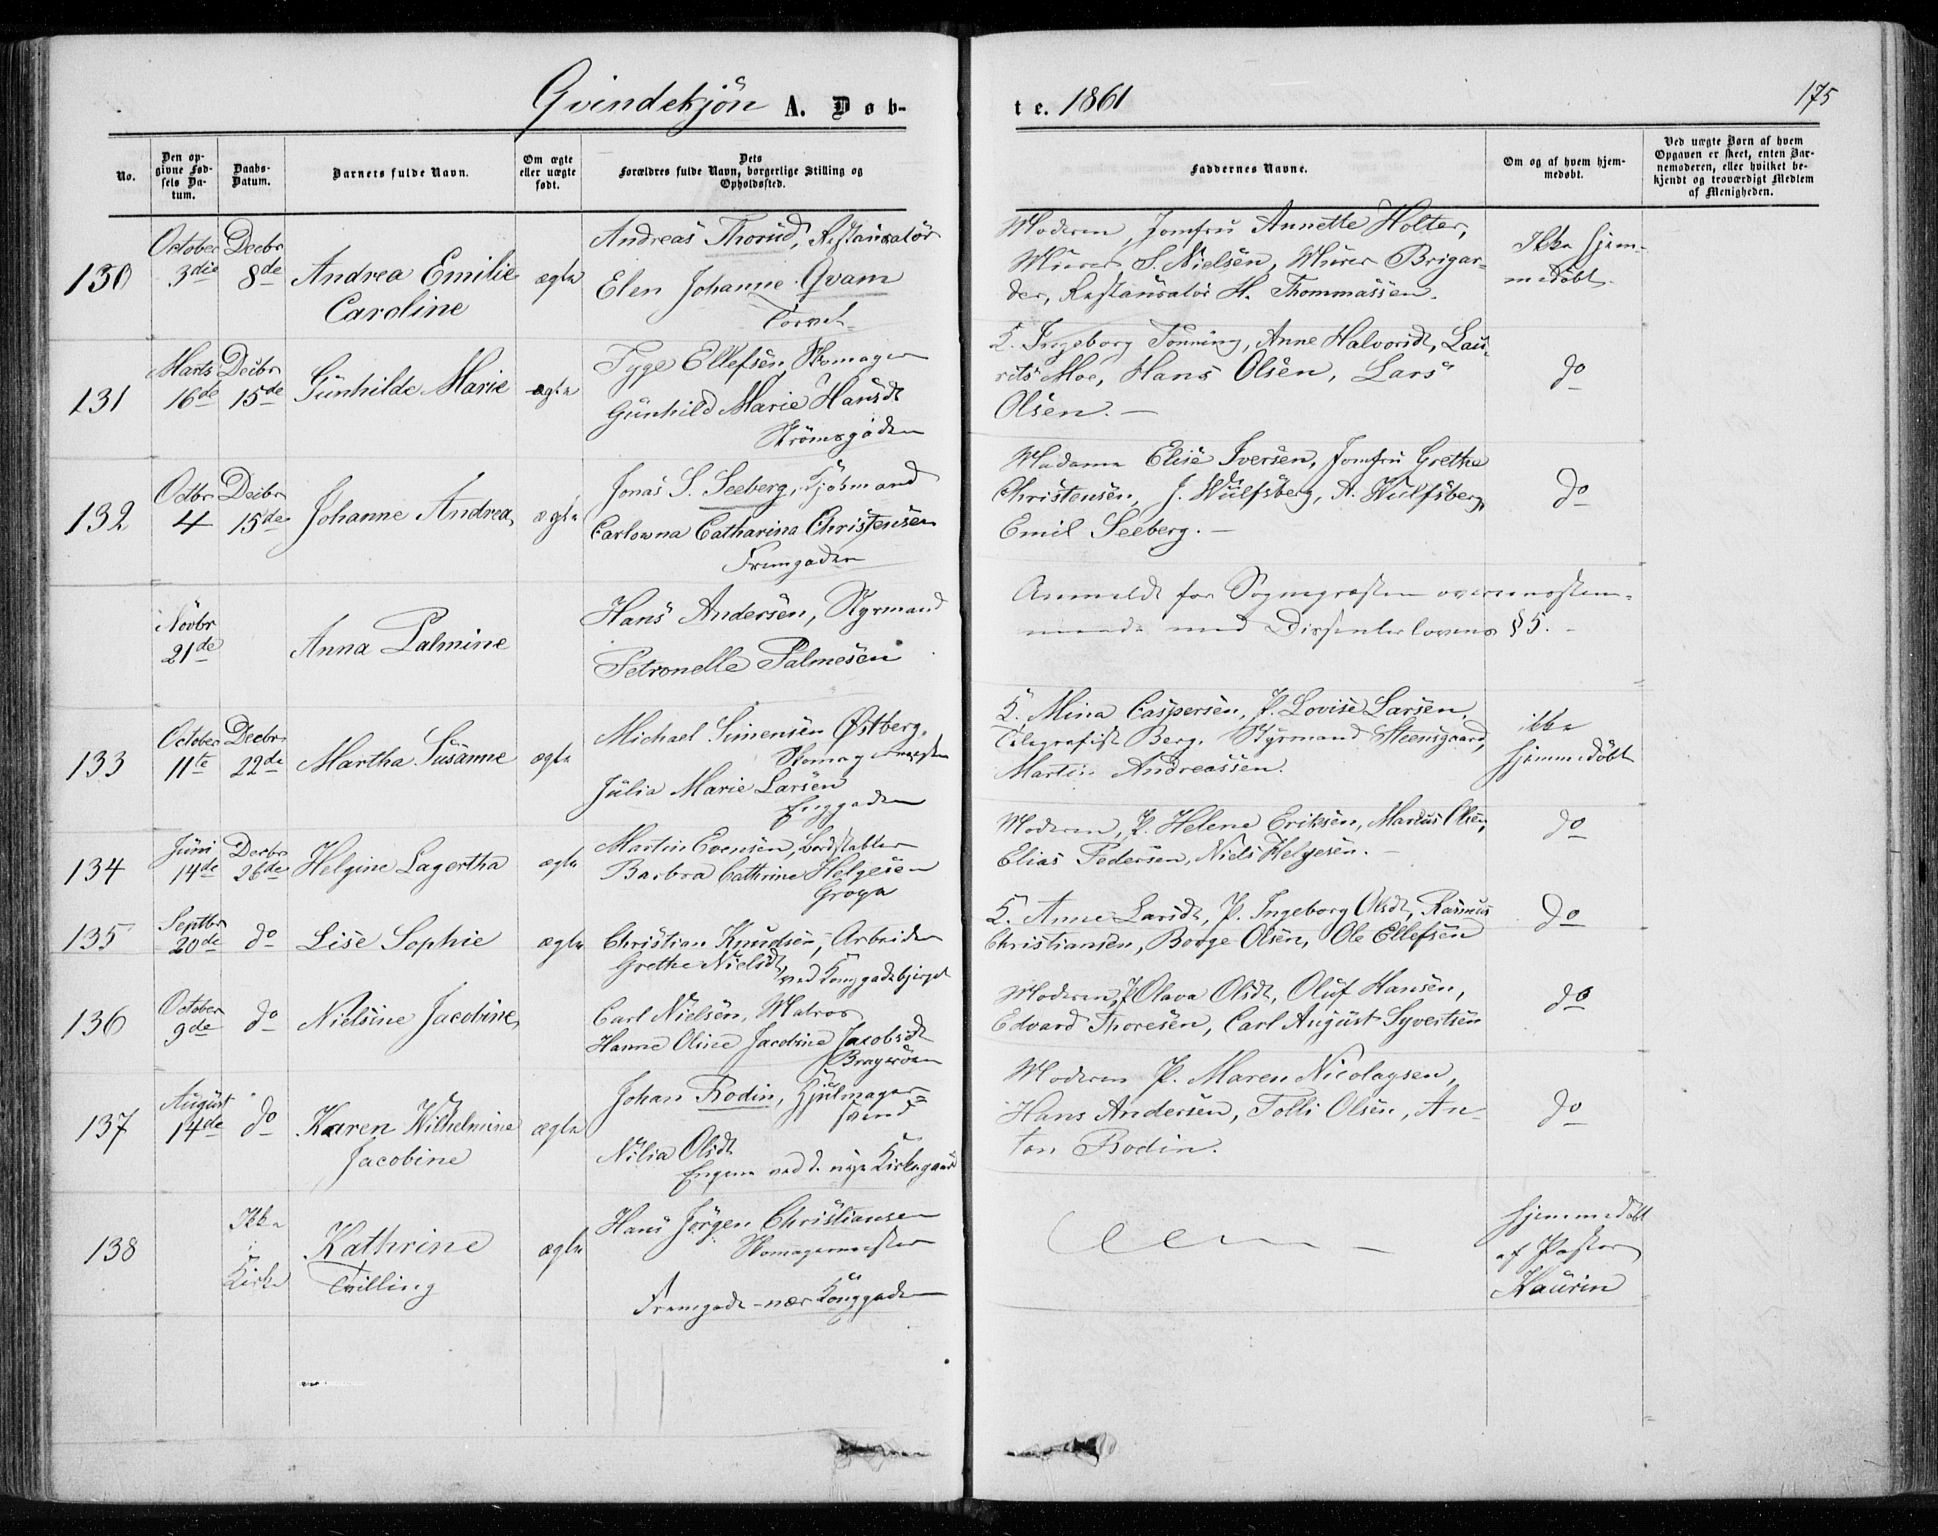 Qvindekjön A. Døb-
te. 1861
175
No.
Den op-
givne Fød-
sels Da-
tum.
Daabs-
Datum.
Barnets fulde Navn.
Om ægte
eller uægte
født.
Dets
Forældres fulde Navn, borgerlige Stilling og
Opholdssted.
Faddernes Navne.
Om og af hvem hjem-
medøbt.
Ved uægte Børn af hvem
Opgaven er skeet, enten Bar-
nemoderen, eller hvilket be-
kjendt og troværdigt Medlem
af Menigheden.
130
October
3die
Decbr
8de
Andrea Emilie
Caroline
ægte
Andreas Thorud, Restauratör
Elen Johanne Qvam
Torvet
Moderen, Jomfru Annette Holter,
Murer S. Nielsen, Murer Brigar-
der, Restauratör H. Thommassen.
Ikke hjem-
medöbt.
131
Marts
16de
Decbr
15de
Gunhilde Marie
ægte
Tyge Ellefsen, Skomager
Gunhild Marie Hansdt
Strömsgaden
K. Ingeborg Tönning, Anne Halvorsdt, Lau-
rits Moe, Hans Olsen, Lars
Olsen. —
do
132
Octbr
4
Decbr
15de
Johanne Andrea
ægte
Jonas S. Seeberg, Kjöbmand
Carlowna Catharina Christensen
Fremgaden
Madame Elise Iversen, Jomfru Grethe
Christensen, J. Wulfsberg, A. Wulfsberg,
Emil Seeberg. —
do
Novbr
21de
Anna Palmine
Hans Andersen, Styrmand
Petronelle Palmesen
Anmeldt for Sognepræsten overensstem-
mende med Dissenterlovens § 5. —
133
October
11te
Decbr
22de
Martha Susanne
ægte
Michael Simensen Östberg,
Skomagermester
Julia Marie Larsen
Enggaden
K. Mina Caspersen, P. Lovise Larsen,
Telegrafist Berg, Styrmand Steensgaard,
Martin Andreassen.
ikke
hjemmedöbt
134
Juni
14de
Decbr
26de
Helgine Lagertha
ægte
Martin Evensen, Bordstabler
Barbra Cathrine Helgesen
Moderen, P. Helene Eriksen, Marius Olsen,
Elias Pedersen, Niels Helgesen. —
do
135
Septbr
20de
do
Lise Sophie
ægte
Christian Knudsen, Arbeider
Grethe Nielsdt
ved Konggadebjerget
K. Anne Larsdt, P. Ingeborg Olsdt, Rasmus
Christiansen, Borge Olsen, Ole Ellefsen
do
136
October
9de
do
Nielsine Jacobine
Carl Nielsen, Matros
Hanne Oline Jacobine Jacobsdt
Bragerøen
Moderen, P. Olava Olsdt, Oluf Hansen,
Edvard Thoresen, Carl August Syvertsen
do
137
August
14de
do
Karen Wilhelmine
Jacobine
ægte
Johan Rodin, Hjulmager-
svend
Nilia Olsdt
Engene ved d. nye Kirkegaard
Moderen P. Maren Nicolaysen,
Hans Andersen, Tolli Olsen, An-
ton Rodin.
do
138
Ikke
i
Kirke
Kathrine
Tvilling
ægte
Hans Jörgen Christiansen
Skomagermester
Fremgade nær Konggaden
hjemmedöbt
af Pastor
Kaurin